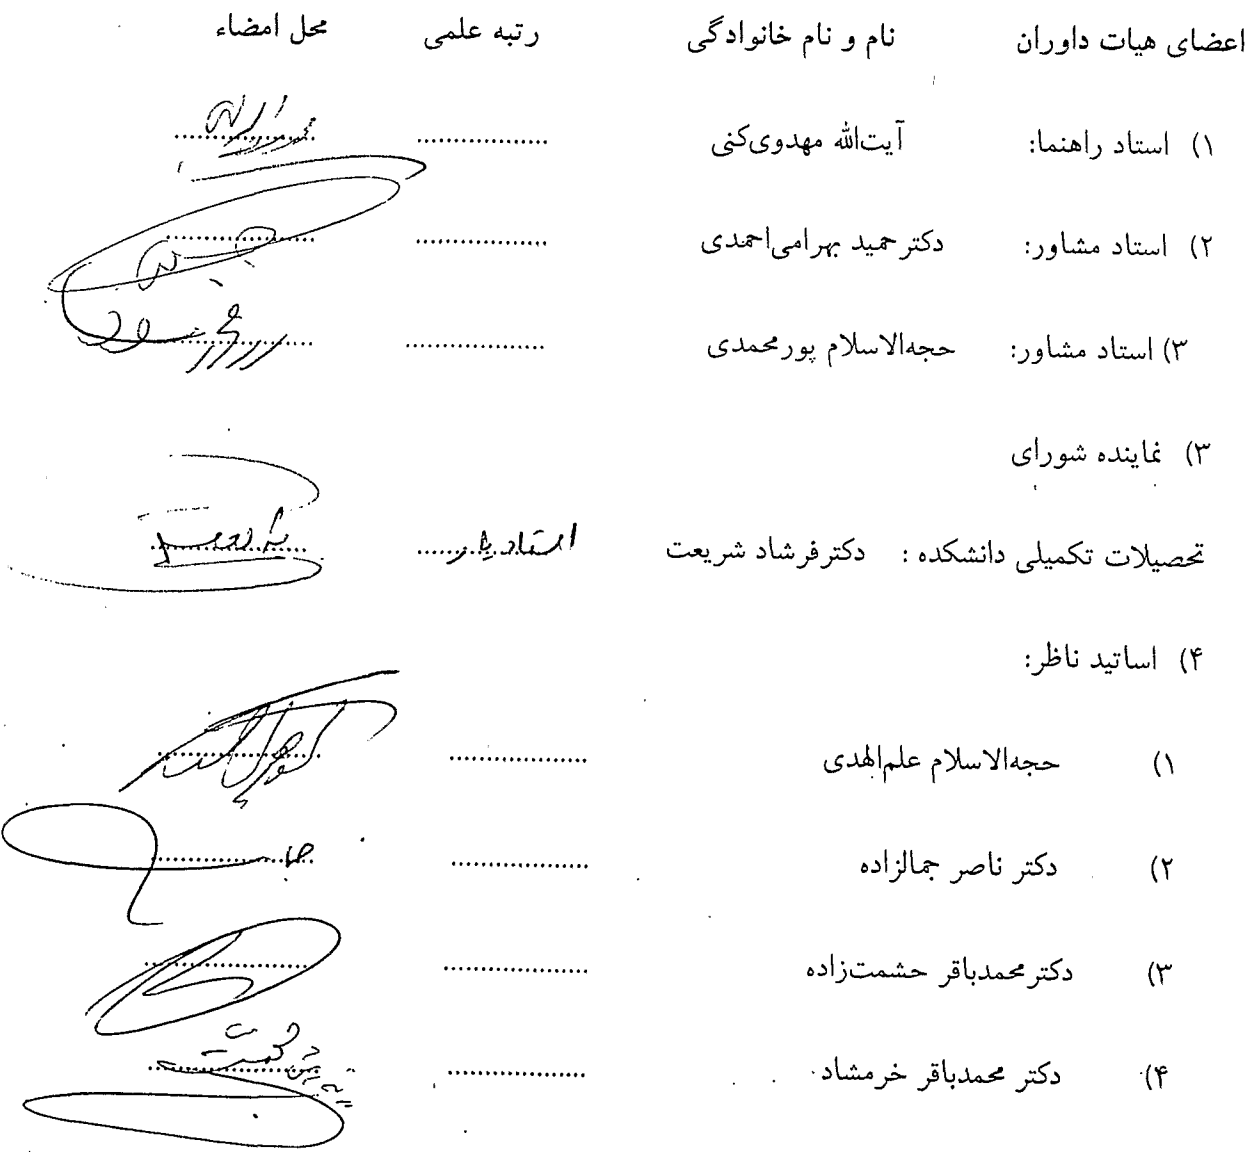 اعضای هیات داوران نام و نام خانوادگی رتبه علمی محل امضاء
۱) استاد راهنما: آیت‌الله مهدوی‌کنی .................. ..................
۲) استاد مشاور: دکتر حمید بهرامی‌احمدی .................. ..................
۳) استاد مشاور: حجه‌الاسلام پورمحمدی .................. ..................
۳) نماینده شورای
تحصیلات تکمیلی دانشکده : دکترفرشاد شریعت استادیار
۴) اساتید ناظر:
۱) حجه‌الاسلام علم‌الهدی .................. ..................
۲) دکتر ناصر جمالزاده .................. ..................
۳) دکترمحمدباقر حشمت‌زاده .................. ..................
۴) دکتر محمدباقر خرمشاد .................. ..................